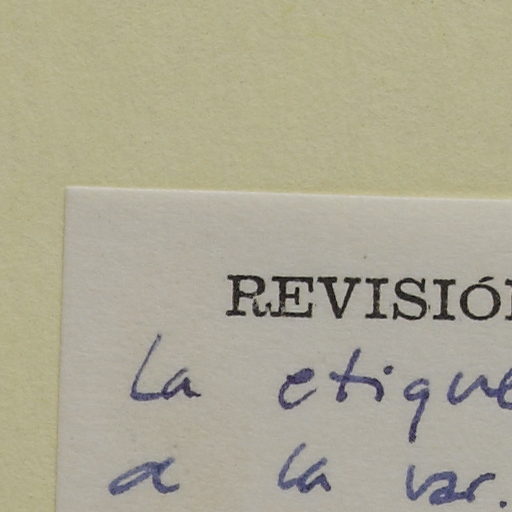 REVISIÓ
La etique
a la var.